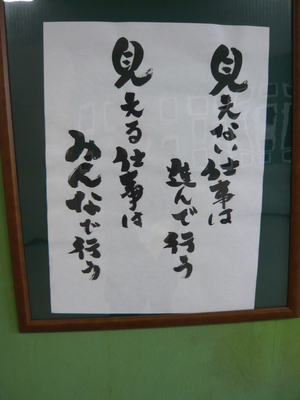 見えない仕事は
進んで行う
見える仕事は
みんなで行う